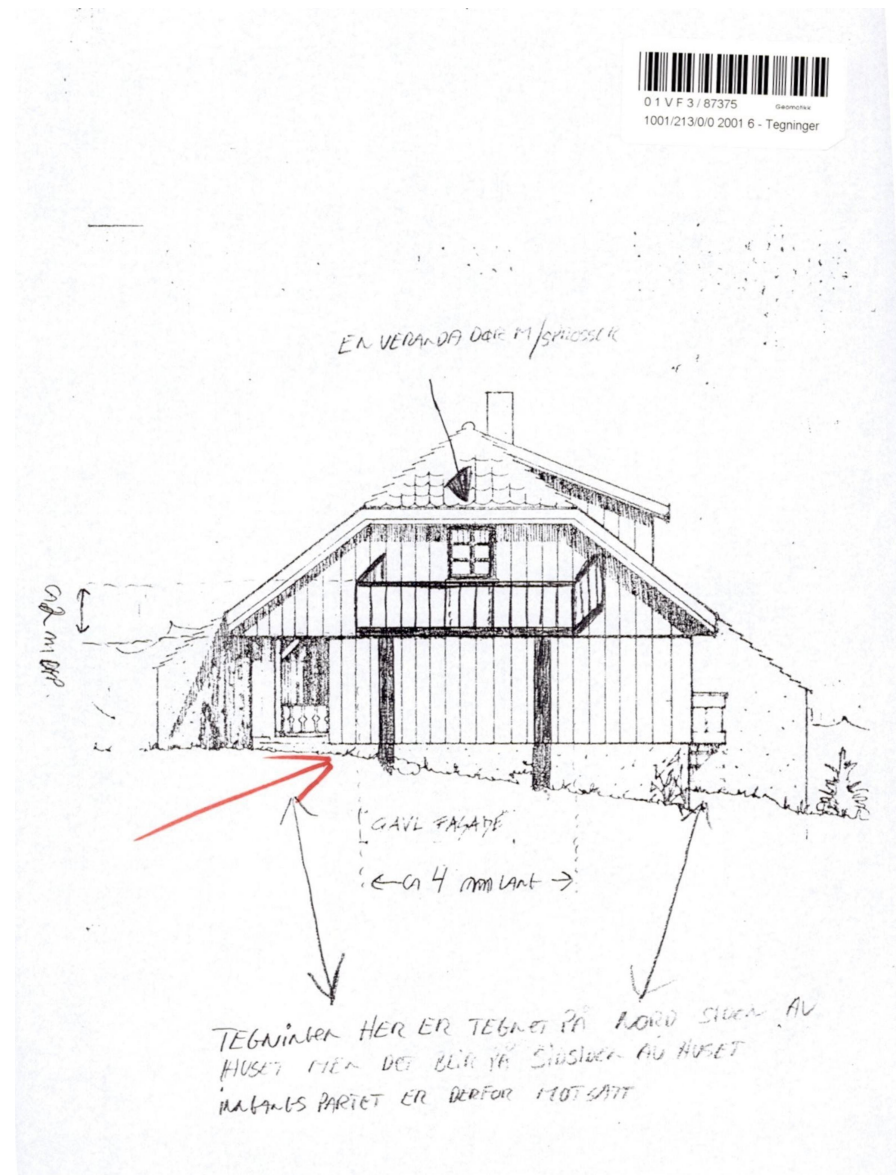 01VF3/87375
Geomatikk
1001/213/0/0 2001 6 - Tegninger
EN VERANDA DØR M/SPROSSER
CA 2 M DYP.
GAVL FASADE
CA 4 LANG
TEGNINGEN HER ER TEGNET PÅ NORD SIDEN AV
HUSET MEN DET BLIR PÅ SIDSIDEN AV HUSET
INNGANGS PARTET ER DERFOR MOTSATT